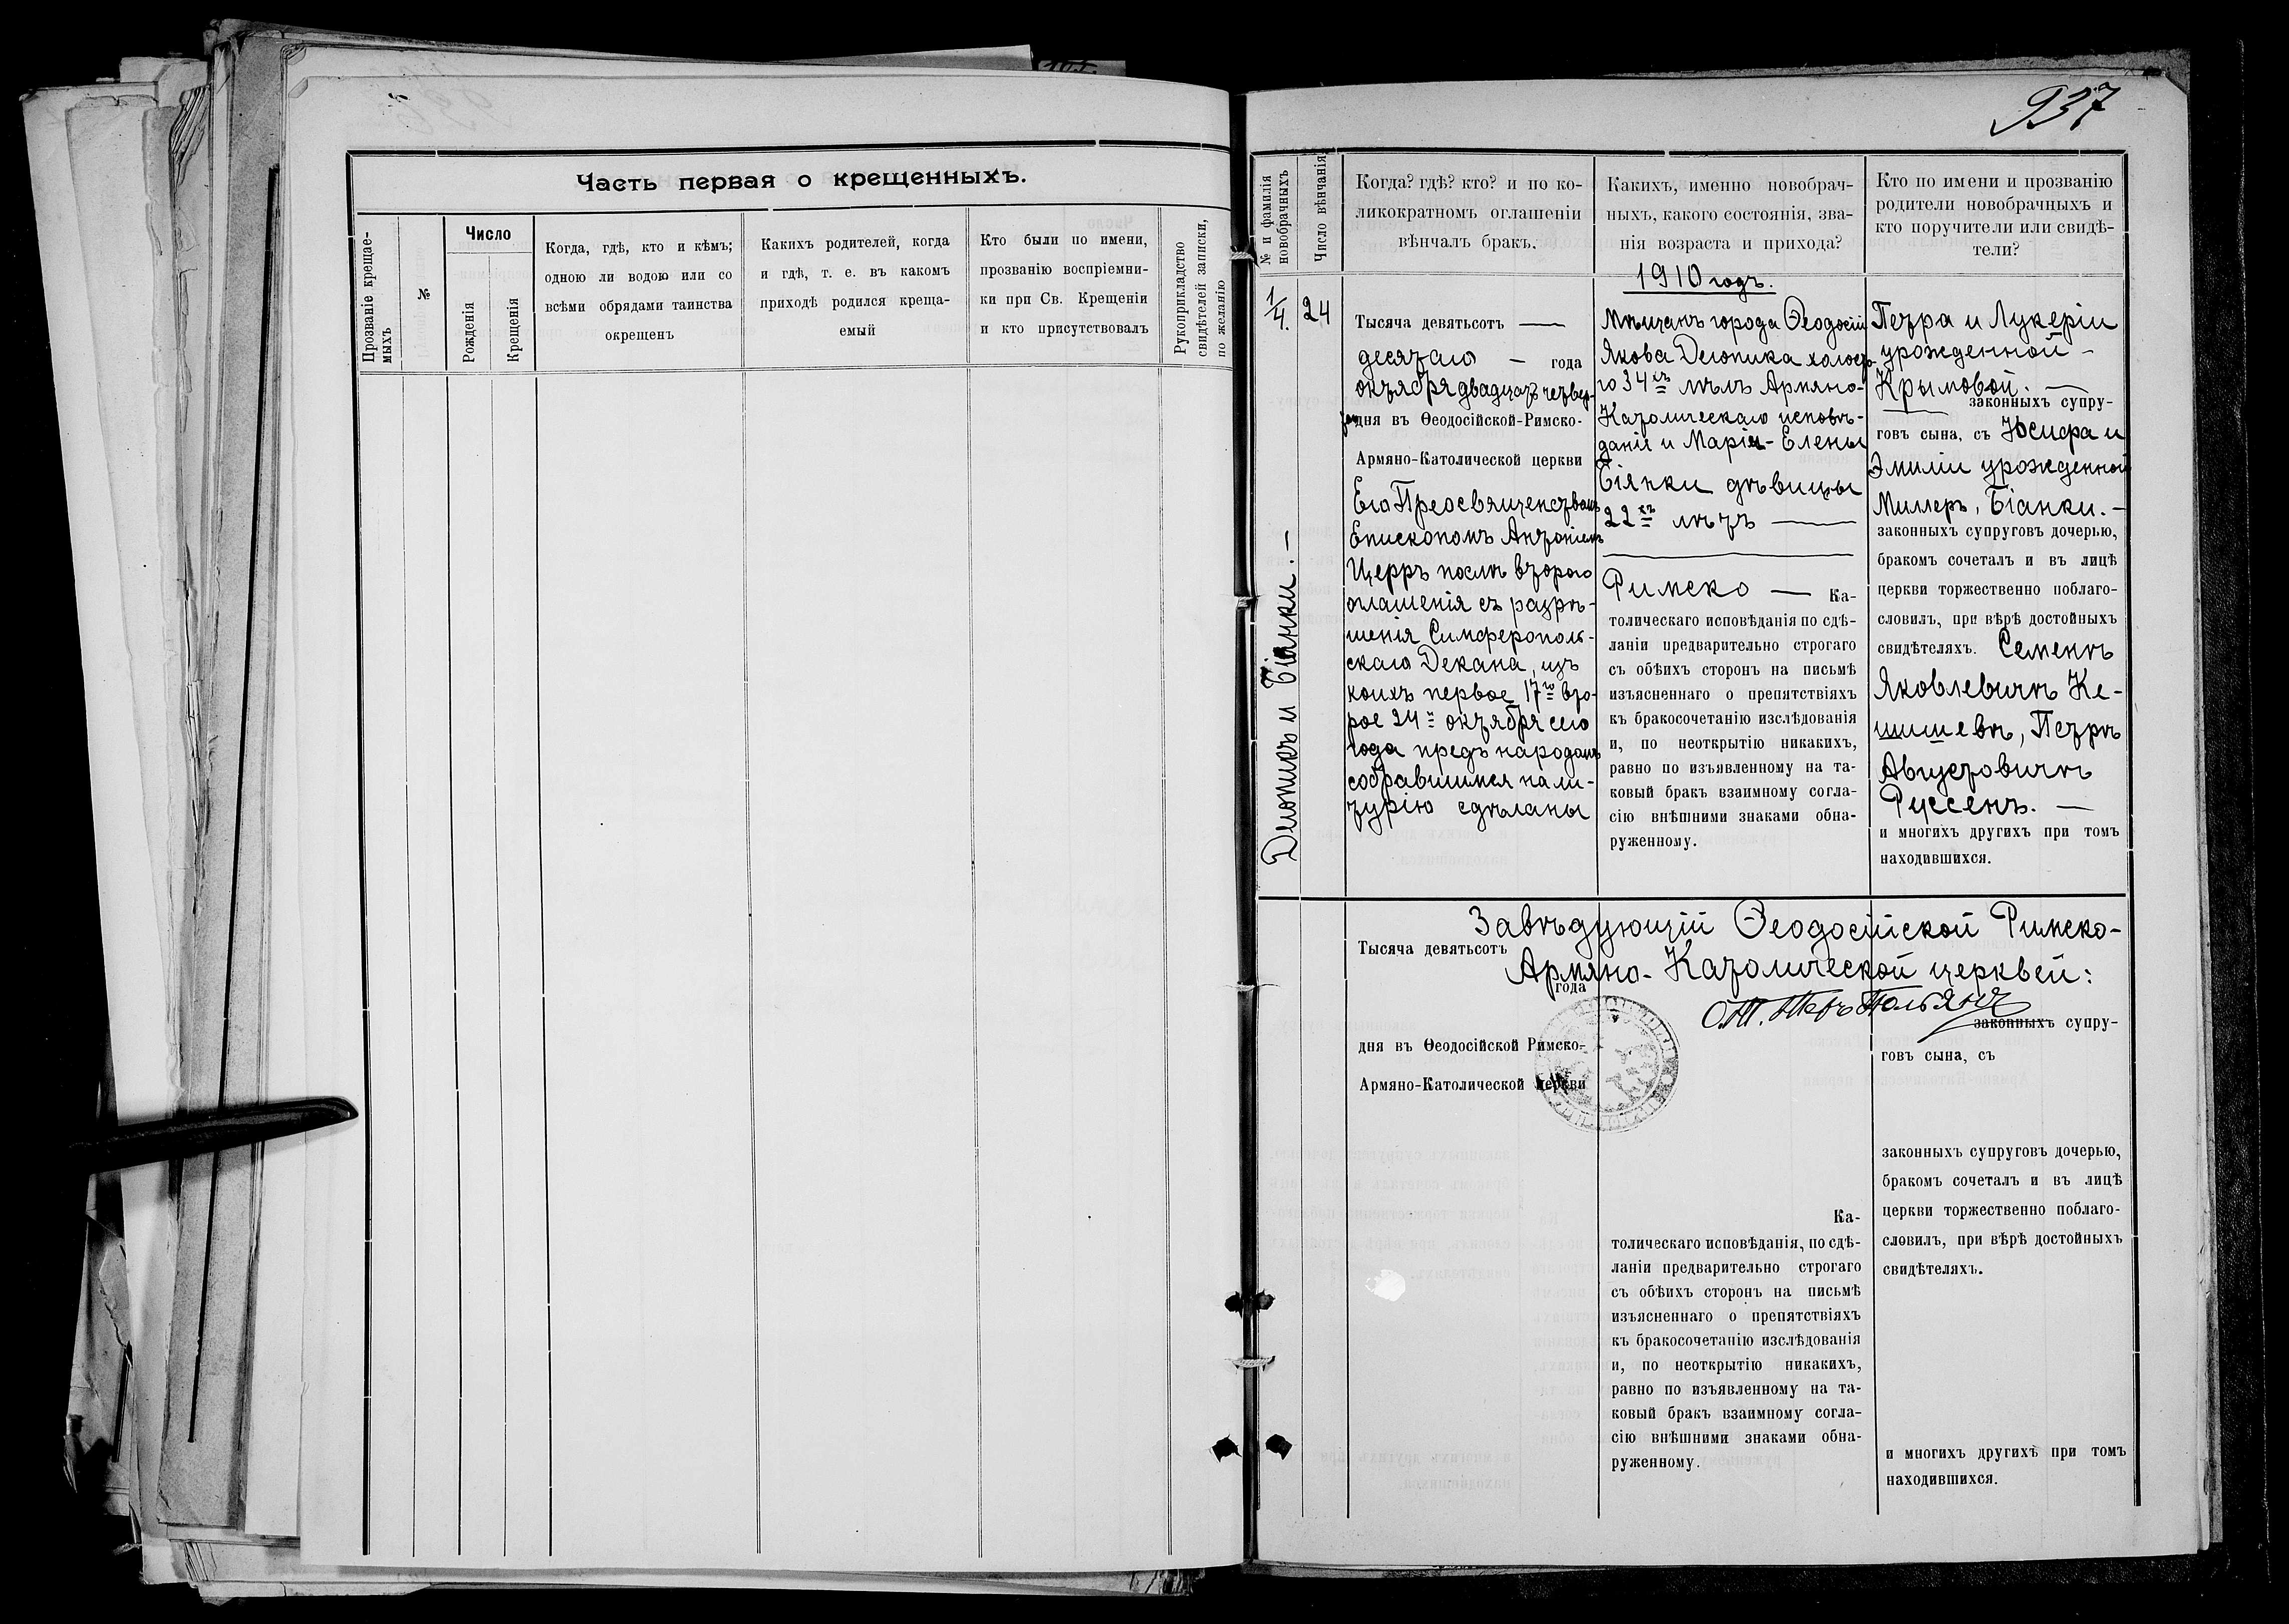 Часть первая о крещенныхъ.
Прозваніе крещае-
мыхъ
№
Число
Рожденія
Крещенія
Когда, гдѣ, кто и кѣмъ;
одною ли водою или со
всѣми обрядами таинства
окрещенъ
Какихъ родителей, когда
и гдѣ, т. е. въ какомъ
приходѣ родился креща-
емый
Кто были по имени,
прозванію воспріемни-
ки при Св. Крещеніи
и кто присутствовалъ
Рукоприкладство
свидѣтелей записки,
по желанію
937
№ и фамилія
новобрачныхъ
Число вѣнчанія
Когда? гдѣ? кто? и по ко-
ликократномъ оглашеніи
вѣнчалъ бракъ.
Какихъ, именно новобрач-
ныхъ, какого состоянія, зва-
нія возраста и прихода?
Кто по имени и прозванію
родители новобрачныхъ и
кто поручители или свидѣ-
тели?
1910 годъ.
1/4.
Делопика и Біянки. —
24
Тысяча девятьсотъ
десятаго — года
октября двадцать четвер-
таго дня въ Ѳеодосійской-Римско-
Армяно-Католической церкви
Его Преосвященствомъ
Епископомъ Антоніемъ
Церръ послѣ второго
оглашенія съ разрѣ-
шенія Симферополь-
скаго Декана, изъ
коихъ первое 17го вто-
рое 24го октября сего
года предъ народомъ
собравшимся на ли-
тургію сдѣланы
Мѣщанъ города Ѳеодосіи
Якова Делопика холосто-
го 34хъ лѣтъ Армяно-
Католическаго исповѣ-
данія и Маріи-Елены
Біянки дѣвицы
22хъ лѣтъ —
Римско — Ка-
толическаго исповѣданія по сдѣ-
ланіи предварительно строгаго
съ обѣихъ сторонъ на письмѣ
изъясненнаго о препятствіяхъ
къ бракосочетанію изслѣдованія
и, по неоткрытію никакихъ,
равно по изъявленному на та-
ковый бракъ взаимному согла-
сію внѣшними знаками обна-
руженному.
Петра и Лукеріи
урожденной —
Крымовой. —
законныхъ супру-
говъ сына, съ Іосифа и
Эмиліи урожденной
Миллеръ, Біанки. —
законныхъ супруговъ дочерью,
бракомъ сочеталъ и въ лицѣ
церкви торжественно поблаго-
словилъ, при вѣрѣ достойныхъ
свидѣтеляхъ. Семенѣ
Яковлевичѣ Ке-
шишевѣ, Петрѣ
Августовичѣ
Руссенъ. —
и многихъ другихъ при томъ
находившихся.
Завѣдующій Ѳеодосійской Римско-
Тысяча девятьсотъ
Армяно-Католической церквей:
года
законныхъ супру-
дня въ Ѳеодосійской Римско-
говъ сына, съ
Армяно-Католической церкви
Ка-
толическаго исповѣданія, по сдѣ-
ланіи предварительно строгаго
съ обѣихъ сторонъ на письмѣ
изъясненнаго о препятствіяхъ
къ бракосочетанію изслѣдованія
и, по неоткрытію никакихъ,
равно по изъявленному на та-
ковый бракъ взаимному согла-
сію внѣшними знаками обна-
руженному.
законныхъ супруговъ дочерью,
бракомъ сочеталъ и въ лицѣ
церкви торжественно поблаго-
словилъ, при вѣрѣ достойныхъ
свидѣтеляхъ.
и многихъ другихъ при томъ
находившихся.